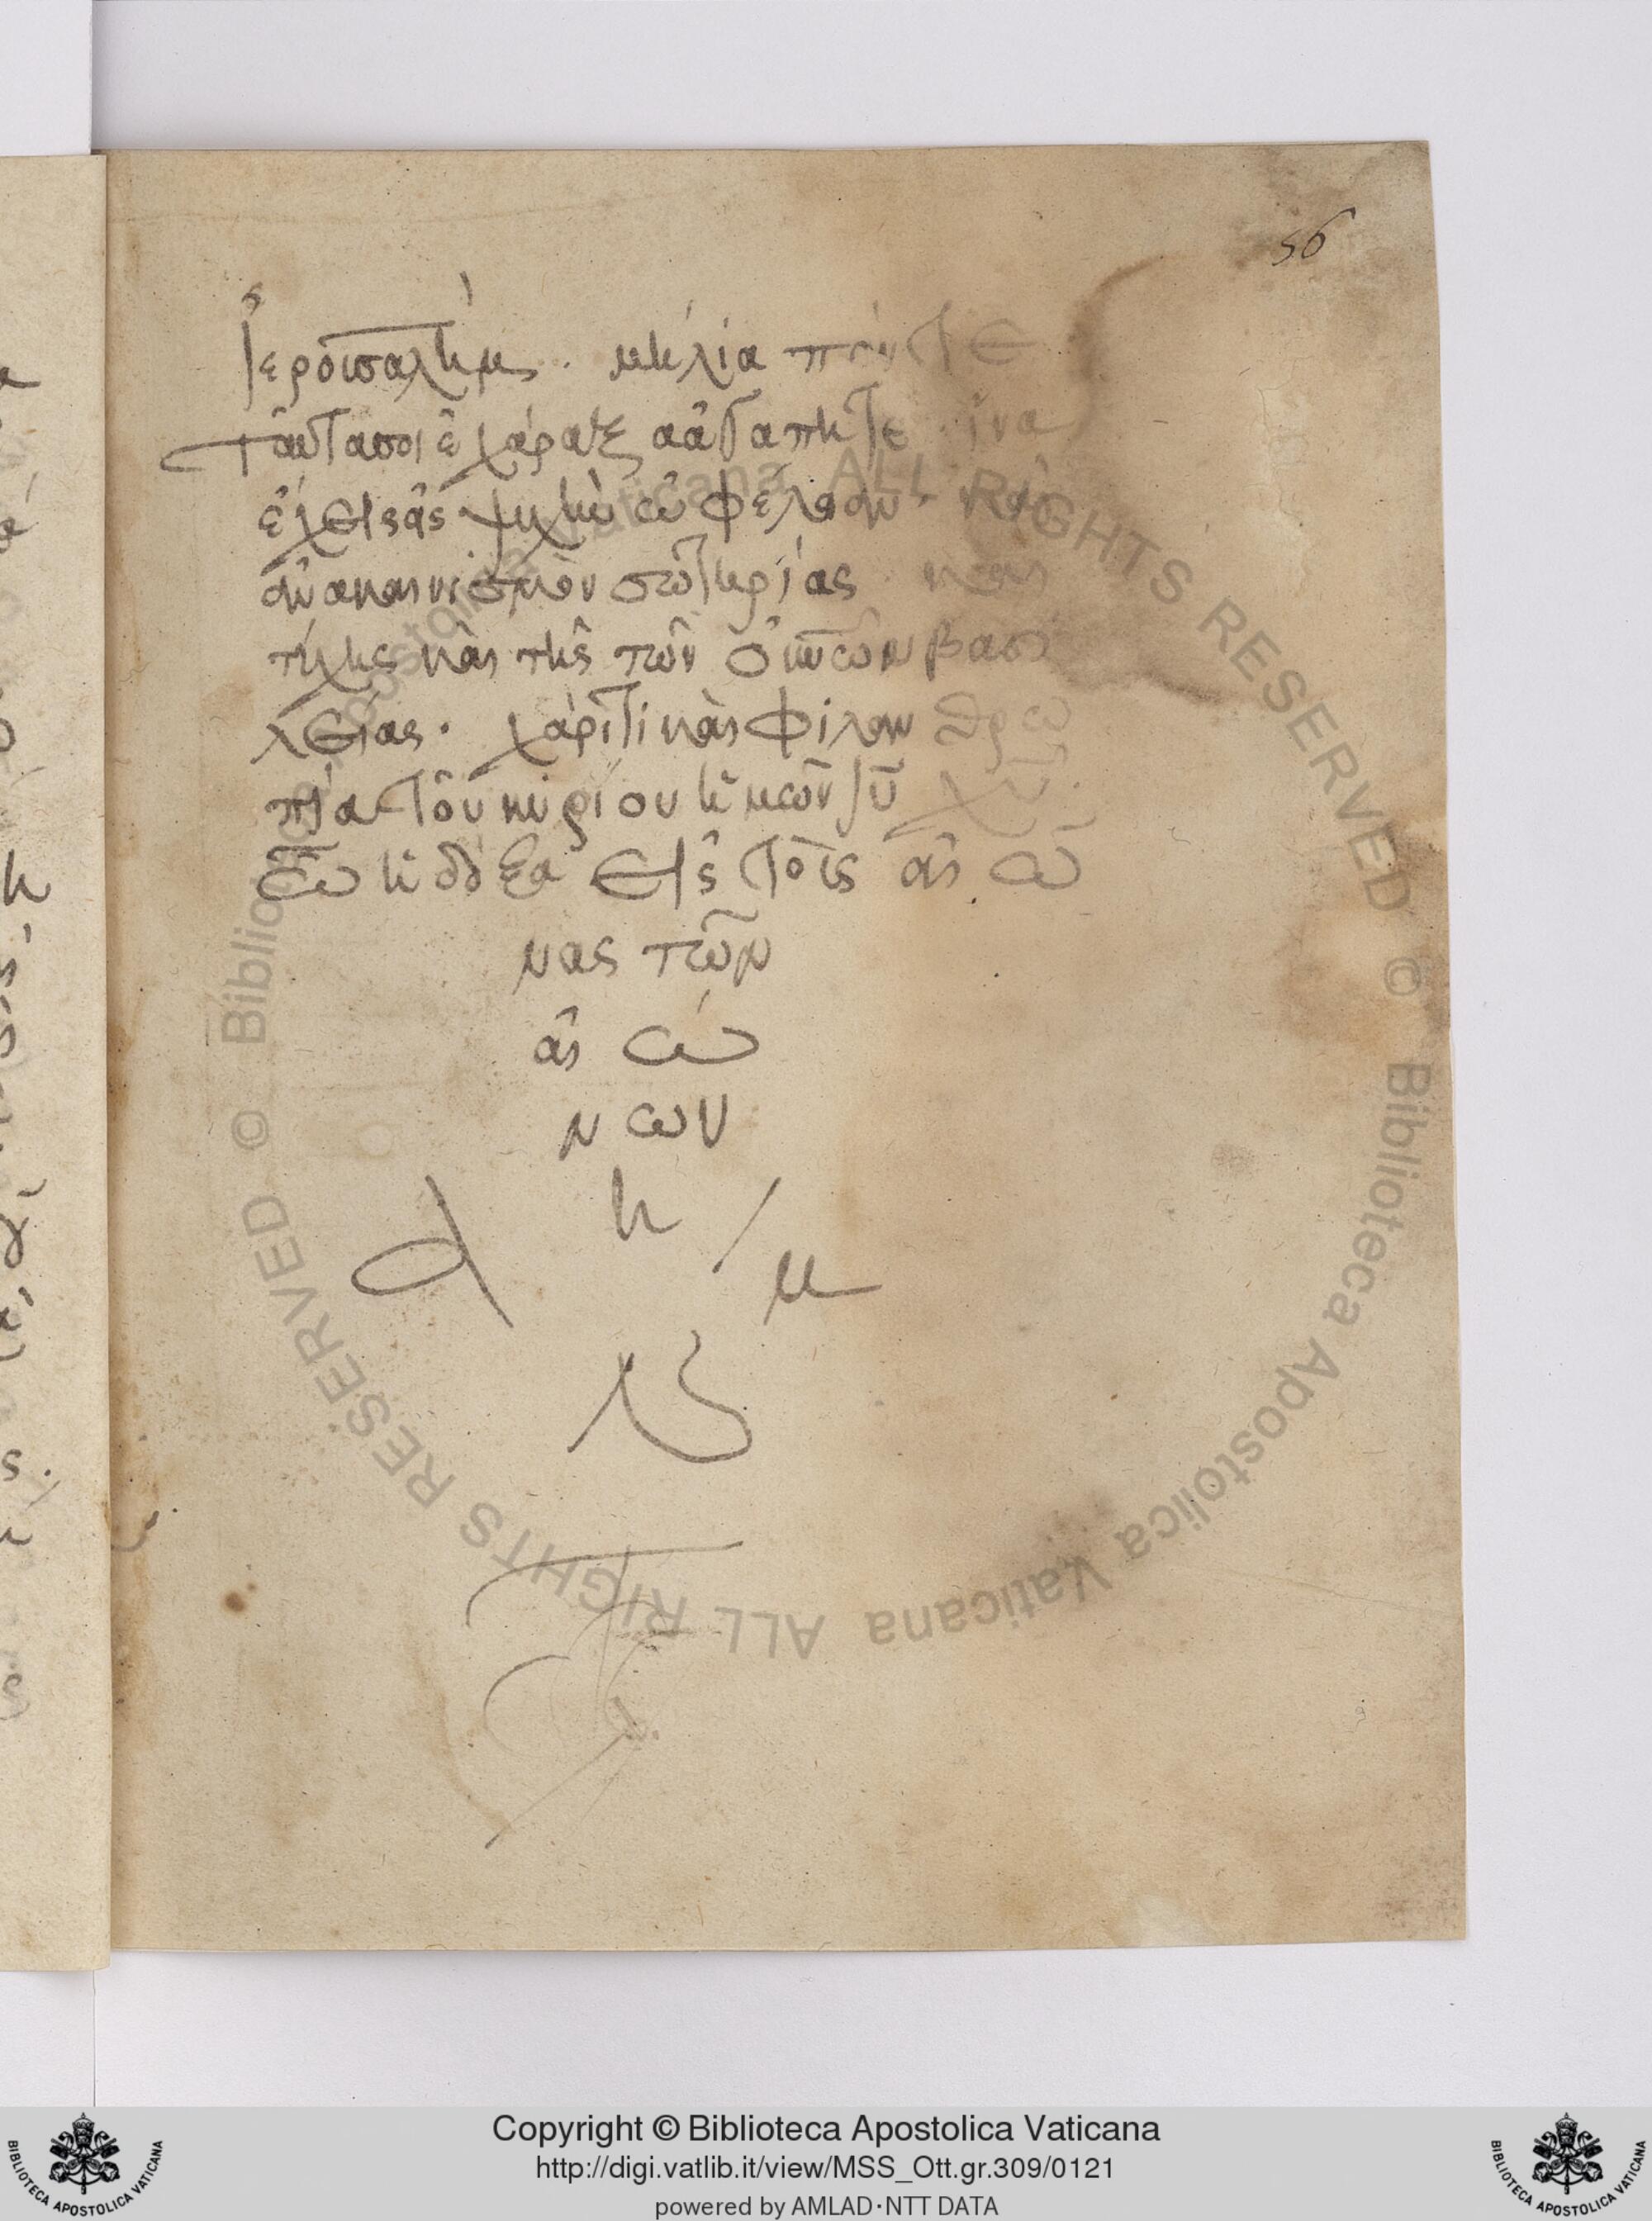 56
Ἱερουσαλὴμ. μήλια πέντε
ταῦτα σοι ἐχάραξα ἀγαπητὲ ἵνα
ἔχεις ἂς ψυχὴν ὠφέλειαν. καὶ
ἀνακαινισμὸν σωτηρίας καὶ
τύχης καὶ τῆς τῶν οὐνῶν βασι
λείας. χάριτι καὶ φιλαν θρω
πία τοῦ κυρίου ἡμῶν ιῦ χῦ.
ὧ ἡ δόξα εἰς τοῖς αἰ ῶ
νας τῶν
αἰ ώ
νων
α μ
η
ν
Copyright © Biblioteca Apostolica Vaticana
http://digi.vatlib.it/view/MSS_Ott.gr.309/0121
powered by AMLAD·NTT DATA
BIBLIOTECA APOSTOLICA VATICANA
BIBLIOTECA APOSTOLICA VATICANA
© Biblioteca Apostolica Vaticana ALL RIGHTS RESERVED © Biblioteca Apostolica Vaticana ALL RIGHTS RESERVED